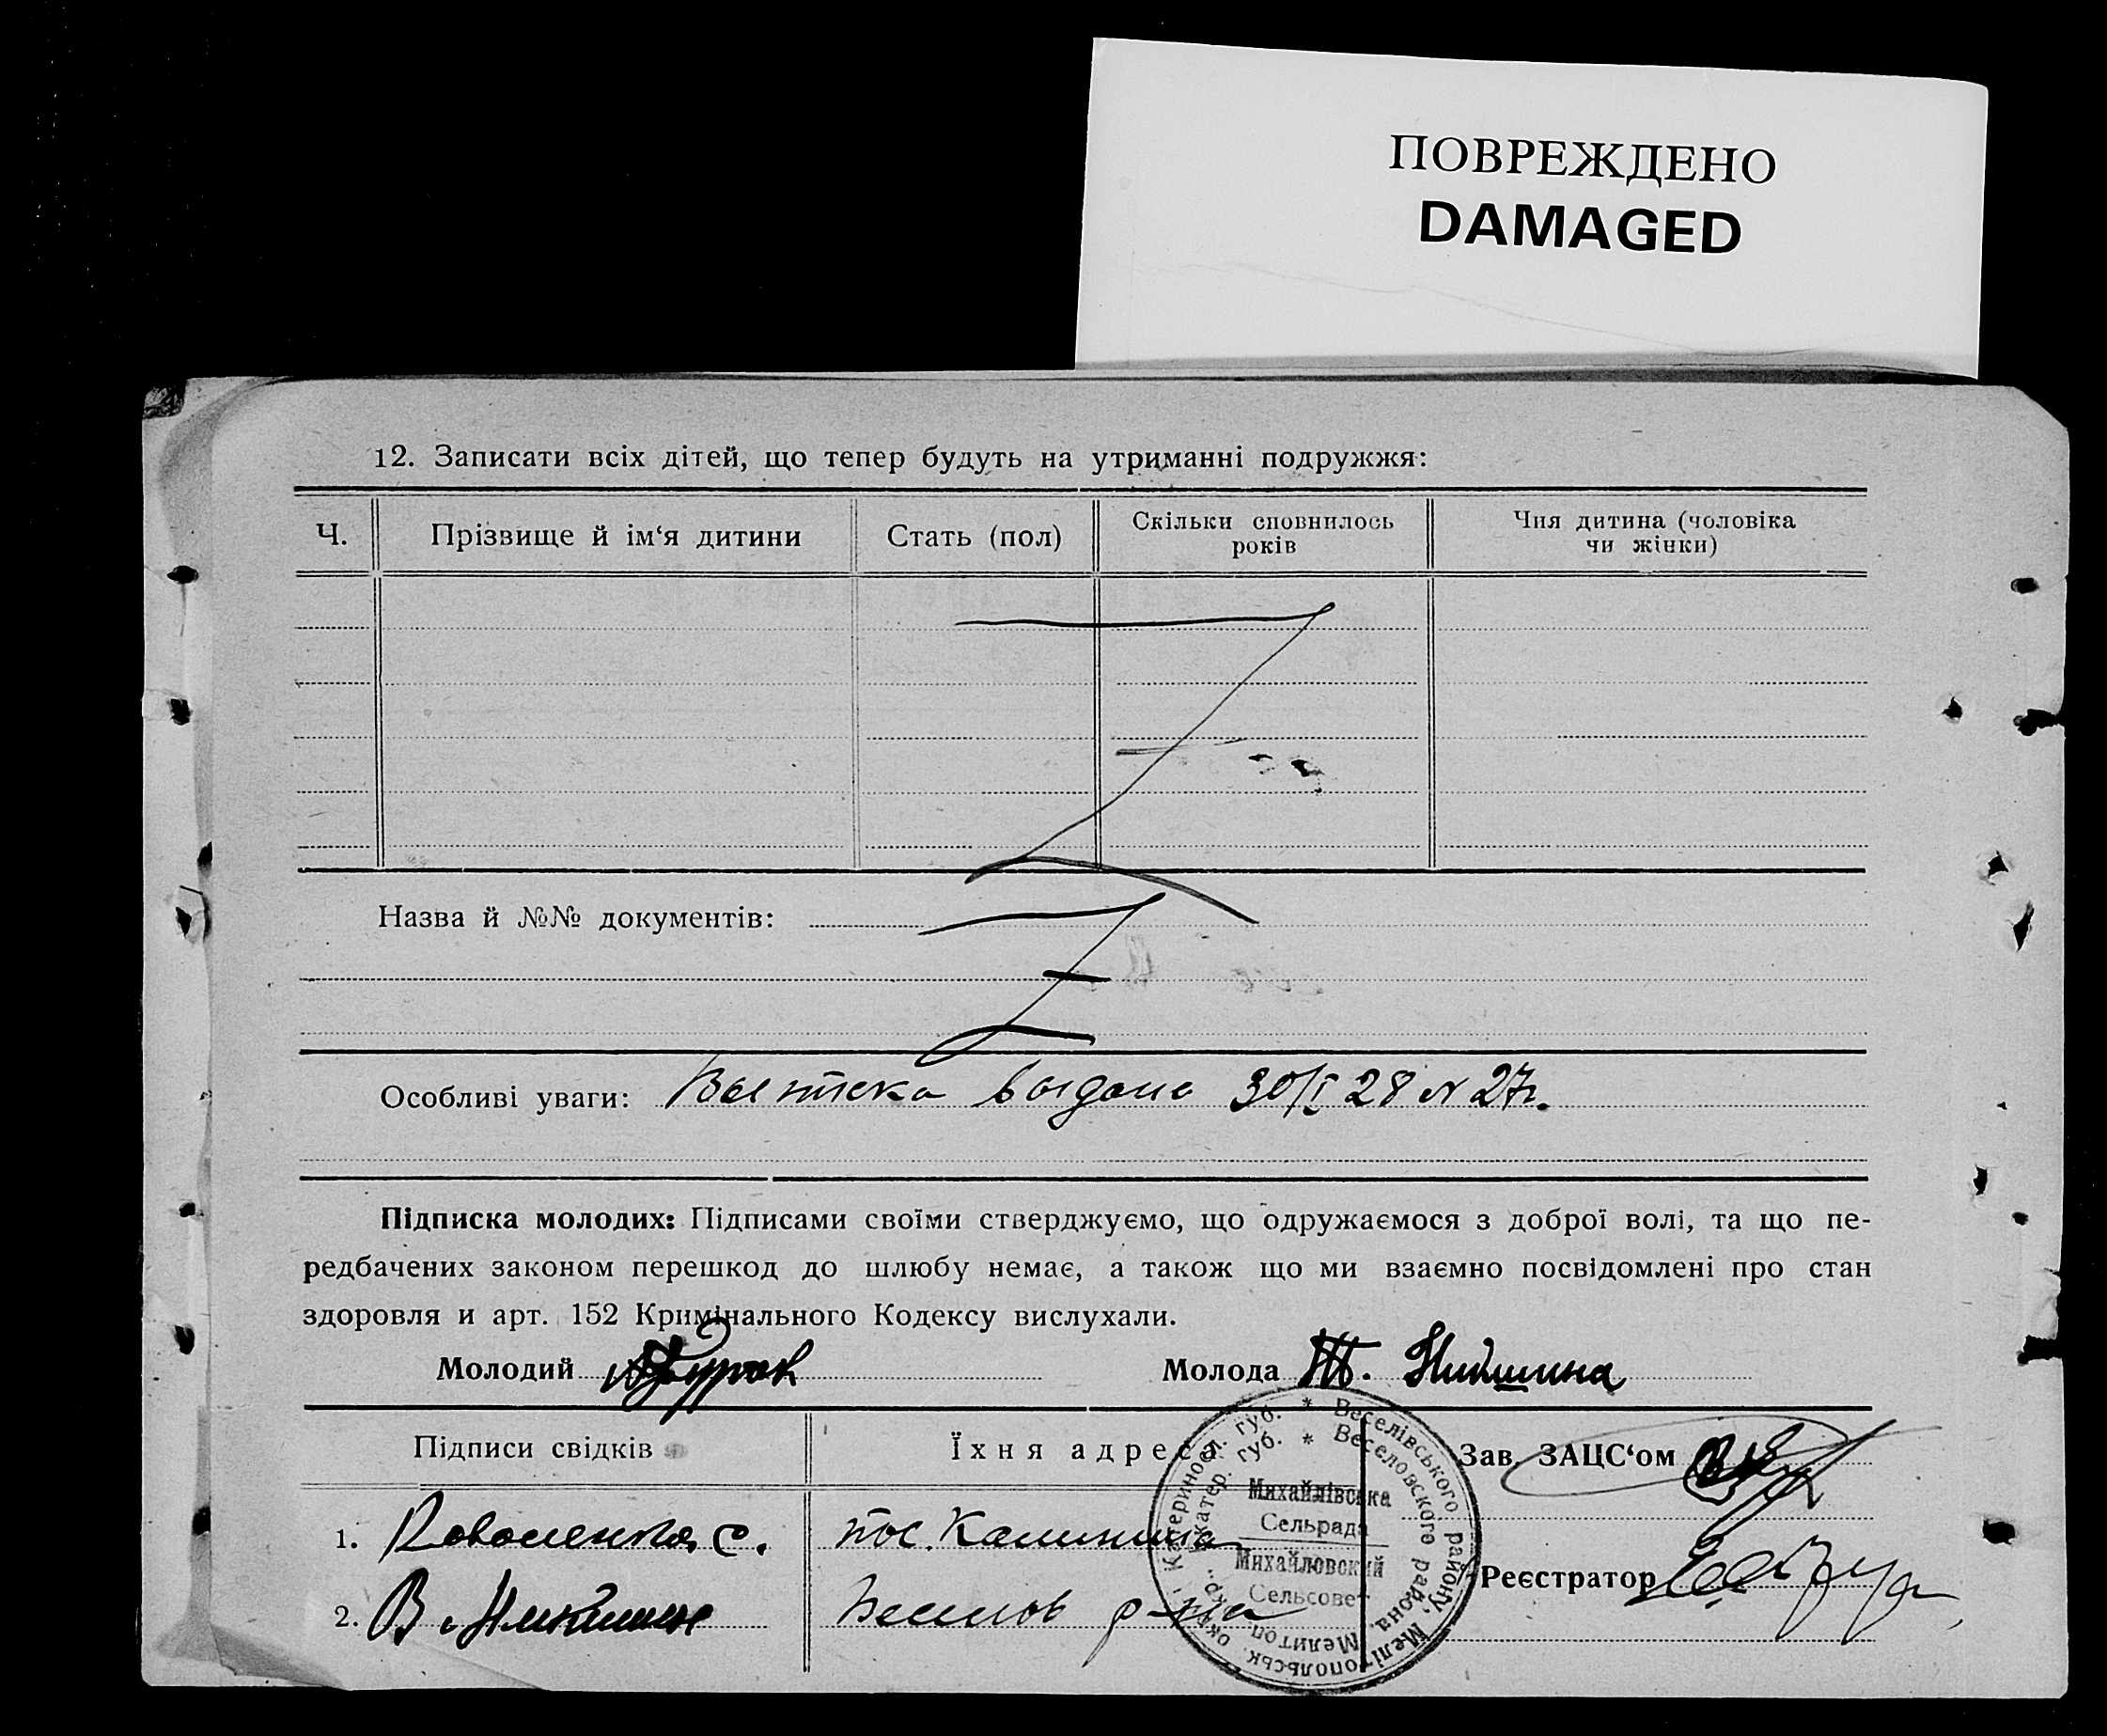 ПОВРЕЖДЕНО
DAMAGED
12. Записати всіх дітей, що тепер будуть на утриманні подружжя:
Ч. Прізвище й ім‘я дитини Стать (пол) Скільки сповнилось років Чия дитина (чоловіка чи жінки)
Назва й №№ документів:
Особливі уваги: Выписка выдана 30/I 28 N 27
Підписка молодих: Підписами своїми стверджуємо, що одружаємося з доброї волі, та що пе-
редбачених законом перешкод до шлюбу немає, а також що ми взаємно посвідомлені про стан
здоровля и арт. 152 Кримінального Кодексу вислухали.
Молодий Молода Т. Никшина
Підписи свідків Їхня адреса Зав. ЗАЦС‘ом
1. Коваленко С. пос. Калинина
2. В. Никшин р-на
Реєстратор
Катериносл. губ. * Веселівського району, Мелітопольськ. окр.
Екатер. губ. * Веселовского района, Мелитоп. окр.
Михайлівська
Сельрада
Михайловский
Сельсовет